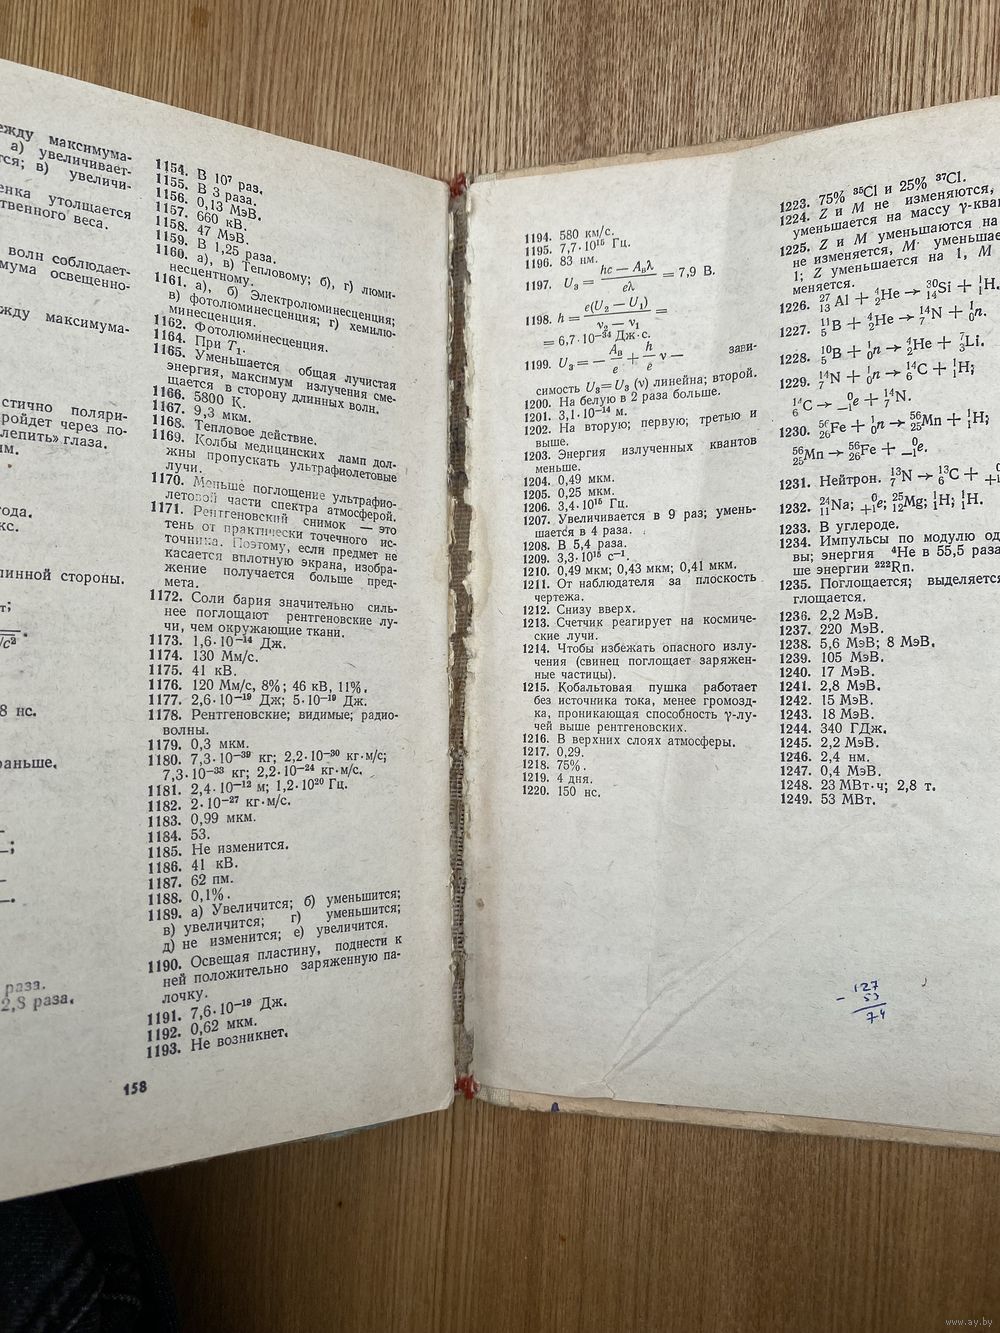 ежду максимума-
а) увеличивает-
тся; в) увеличи-
енка утолщается
твенного веса.
волн соблюдает-
мума освещенно-
жду максимума-
стично поляри-
ройдет через по-
лепить» глаза.
ым.
года.
кс.
линной стороны.
т;
8 нс.
раньше.
раза.
2,8 раза.
1154. В 10⁷ раз.
1155. В 3 раза.
1156. 0,13 МэВ.
1157. 660 кВ.
1158. 47 МэВ.
1159. В 1,25 раза.
1160. а), в) Тепловому; б), г) люми-
несцентному.
1161. а), б) Электролюминесценция;
в) фотолюминесценция; г) хемилю-
минесценция.
1162. Фотолюминесценция.
1164. При T₁.
1165. Уменьшается общая лучистая
энергия, максимум излучения сме-
щается в сторону длинных волн.
1166. 5800 К.
1167. 9,3 мкм.
1168. Тепловое действие.
1169. Колбы медицинских ламп дол-
жны пропускать ультрафиолетовые
лучи.
1170. Меньше поглощение ультрафио-
летовой части спектра атмосферой.
1171. Рентгеновский снимок — это
тень от практически точечного ис-
точника. Поэтому, если предмет не
касается вплотную экрана, изобра-
жение получается больше пред-
мета.
1172. Соли бария значительно силь-
нее поглощают рентгеновские лу-
чи, чем окружающие ткани.
1173. 1,6·10⁻¹⁴ Дж.
1174. 130 Мм/с.
1175. 41 кВ.
1176. 120 Мм/с, 8%; 46 кВ, 11%.
1177. 2,6·10⁻¹⁹ Дж; 5·10⁻¹⁹ Дж.
1178. Рентгеновские; видимые; радио-
волны.
1179. 0,3 мкм.
1180. 7,3·10⁻³⁹ кг; 2,2·10⁻³⁰ кг·м/с;
7,3·10⁻³³ кг; 2,2·10⁻²⁴ кг·м/с.
1181. 2,4·10⁻¹² м; 1,2·10²⁰ Гц.
1182. 2·10⁻²⁷ кг·м/с.
1183. 0,99 мкм.
1184. 53.
1185. Не изменится.
1186. 41 кВ.
1187. 62 пм.
1188. 0,1%.
1189. а) Увеличится; б) уменьшится;
в) увеличится; г) уменьшится;
д) не изменится; е) увеличится.
1190. Освещая пластину, поднести к
ней положительно заряженную па-
лочку.
1191. 7,6·10⁻¹⁹ Дж.
1192. 0,62 мкм.
1193. Не возникнет.
158
1194. 580 км/с.
1195. 7,7·10¹⁵ Гц.
1196. 83 нм.
1197. U₃ = (hc — Aвλ)/(eλ) = 7,9 В.
1198. h = e(U₂ — U₁)/(ν₂ — ν₁) =
= 6,7·10⁻³⁴ Дж·с.
1199. U₃ = — Aв/e + h/e ν — зави-
симость U₃=U₃ (ν) линейна; второй.
1200. На белую в 2 раза больше.
1201. 3,1·10⁻¹⁴ м.
1202. На вторую; первую; третью и
выше.
1203. Энергия излученных квантов
меньше.
1204. 0,49 мкм.
1205. 0,25 мкм.
1206. 3,4·10¹⁵ Гц.
1207. Увеличивается в 9 раз; умень-
шается в 4 раза.
1208. В 5,4 раза.
1209. 3,3·10¹⁵ с⁻¹.
1210. 0,49 мкм; 0,43 мкм; 0,41 мкм.
1211. От наблюдателя за плоскость
чертежа.
1212. Снизу вверх.
1213. Счетчик реагирует на космиче-
ские лучи.
1214. Чтобы избежать опасного излу-
чения (свинец поглощает заряжен-
ные частицы).
1215. Кобальтовая пушка работает
без источника тока, менее громозд-
ка, проникающая способность γ-лу-
чей выше рентгеновских.
1216. В верхних слоях атмосферы.
1217. 0,29.
1218. 75%.
1219. 4 дня.
1220. 150 нс.
1223. 75% ³⁵Cl и 25% ³⁷Cl.
1224. Z и M не изменяются,
уменьшается на массу γ-кван
1225. Z и M уменьшаются на
не изменяется, M уменьшае
1; Z уменьшается на 1, M
меняется.
1226. ²⁷₁₃Al + ⁴₂He → ³⁰₁₄Si + ¹₁H.
1227. ¹¹₅B + ⁴₂He → ¹⁴₇N + ¹₀n.
1228. ¹⁰₅B + ¹₀n → ⁴₂He + ⁷₃Li.
1229. ¹⁴₇N + ¹₀n → ¹⁴₆C + ¹₁H;
¹⁴₆C → ⁰₋₁e + ¹⁴₇N.
1230. ⁵⁶₂₆Fe + ¹₀n → ⁵⁶₂₅Mn + ¹₁H;
⁵⁶₂₅Mn → ⁵⁶₂₆Fe + ⁰₋₁e.
1231. Нейтрон. ¹³₇N → ¹³₆C + ₊₁
1232. ²⁴₁₁Na; ⁰₊₁e; ²⁵₁₂Mg; ¹₁H; ¹₁H.
1233. В углероде.
1234. Импульсы по модулю од
вы; энергия ⁴He в 55,5 раза
ше энергии ²²²Rn.
1235. Поглощается; выделяется
глощается.
1236. 2,2 МэВ.
1237. 220 МэВ.
1238. 5,6 МэВ; 8 МэВ.
1239. 105 МэВ.
1240. 17 МэВ.
1241. 2,8 МэВ.
1242. 15 МэВ.
1243. 18 МэВ.
1244. 340 ГДж.
1245. 2,2 МэВ.
1246. 2,4 нм.
1247. 0,4 МэВ.
1248. 23 МВт·ч; 2,8 т.
1249. 53 МВт.
127
- 53
74
www.ay.by